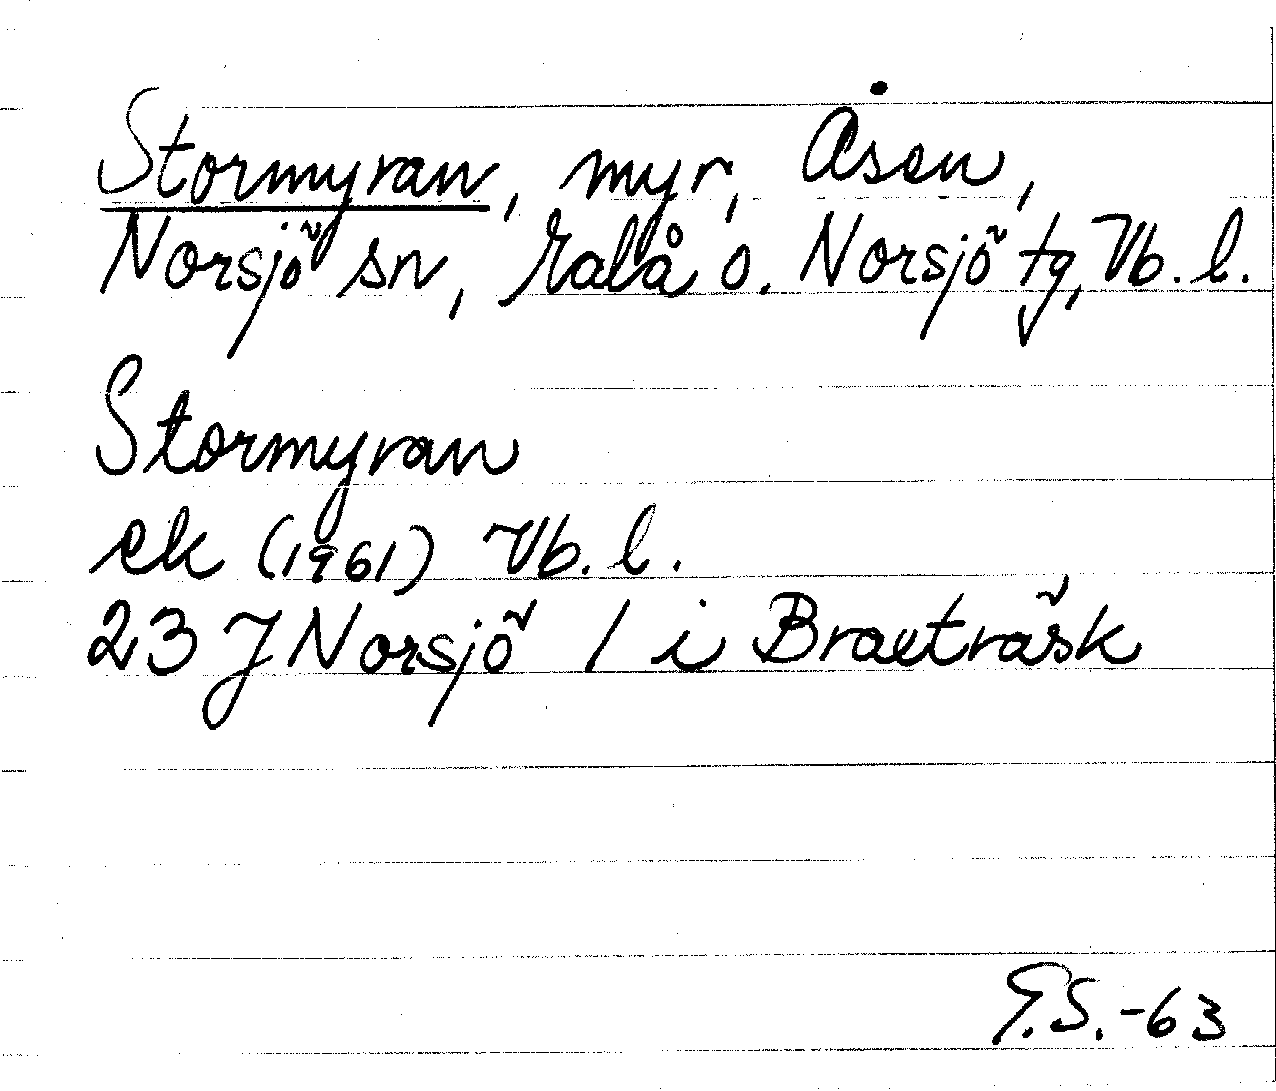 Stormyran, myr, Åsen,
Norsjö sn, Malå o. Norsjö tg, Vb. l.
Stormyran
ek (1961) Vb. l.
23 J Norsjö 1 i Braxträsk
G.S.-63